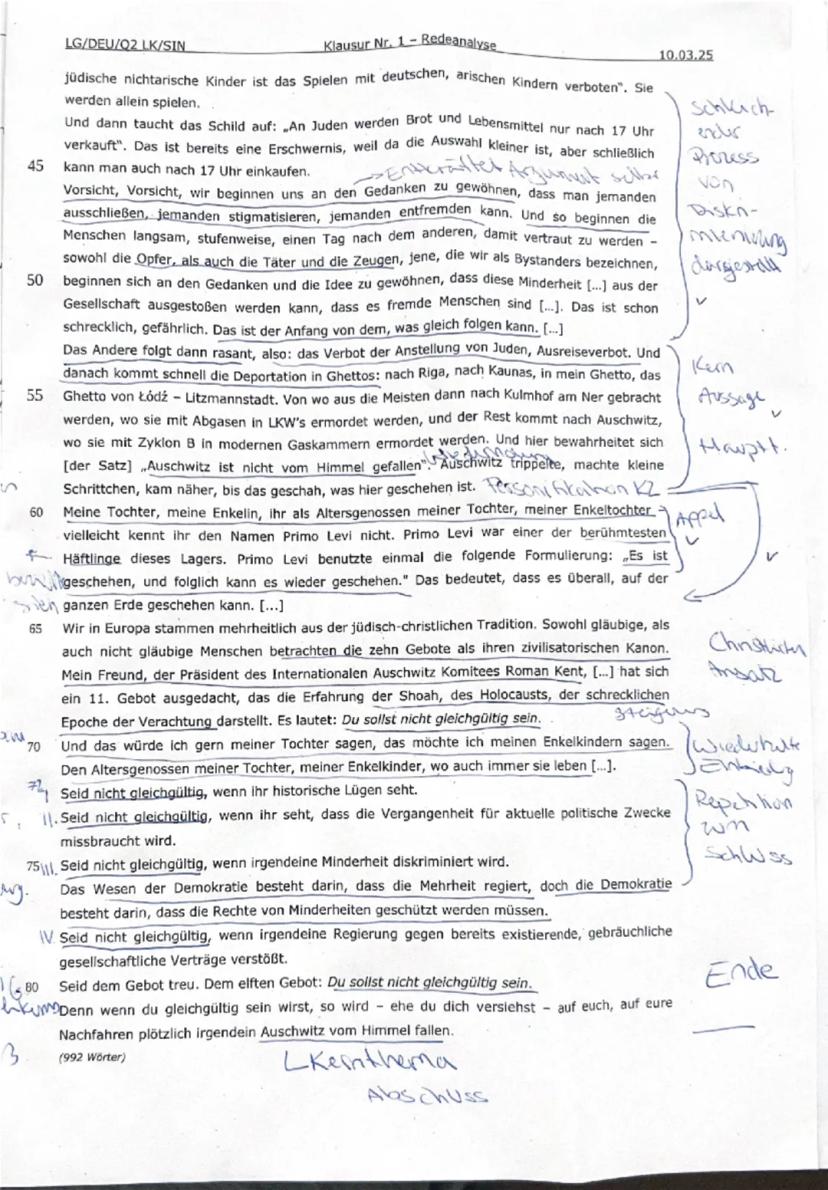 LG/DEU/Q2 LK/SIN Klausur Nr. 1 – Redeanalyse 10.03.25
jüdische nichtarische Kinder ist das Spielen mit deutschen, arischen Kindern verboten". Sie
werden allein spielen.
Und dann taucht das Schild auf: „An Juden werden Brot und Lebensmittel nur nach 17 Uhr
verkauft". Das ist bereits eine Erschwernis, weil da die Auswahl kleiner ist, aber schließlich
45 kann man auch nach 17 Uhr einkaufen.
→ Entkräftet Argument selbst
Vorsicht, Vorsicht, wir beginnen uns an den Gedanken zu gewöhnen, dass man jemanden
ausschließen, jemanden stigmatisieren, jemanden entfremden kann. Und so beginnen die
Menschen langsam, stufenweise, einen Tag nach dem anderen, damit vertraut zu werden –
sowohl die Opfer, als auch die Täter und die Zeugen, jene, die wir als Bystanders bezeichnen,
50 beginnen sich an den Gedanken und die Idee zu gewöhnen, dass diese Minderheit [...] aus der
Gesellschaft ausgestoßen werden kann, dass es fremde Menschen sind [...]. Das ist schon
schrecklich, gefährlich. Das ist der Anfang von dem, was gleich folgen kann. [...]
schleich-
ender
Prozess
von
Diskri-
minierung
dargestellt
✓
Das Andere folgt dann rasant, also: das Verbot der Anstellung von Juden, Ausreiseverbot. Und
danach kommt schnell die Deportation in Ghettos: nach Riga, nach Kaunas, in mein Ghetto, das
55 Ghetto von Łódź – Litzmannstadt. Von wo aus die Meisten dann nach Kulmhof am Ner gebracht
werden, wo sie mit Abgasen in LKW's ermordet werden, und der Rest kommt nach Auschwitz,
wo sie mit Zyklon B in modernen Gaskammern ermordet werden. Und hier bewahrheitet sich
[der Satz] „Auschwitz ist nicht vom Himmel gefallen". Auschwitz trippelte, machte kleine
Schrittchen, kam näher, bis das geschah, was hier geschehen ist. Personifikation KZ
Kern
Aussage ✓
Hauptt.
60 Meine Tochter, meine Enkelin, ihr als Altersgenossen meiner Tochter, meiner Enkeltochter
vielleicht kennt ihr den Namen Primo Levi nicht. Primo Levi war einer der berühmtesten
Häftlinge dieses Lagers. Primo Levi benutzte einmal die folgende Formulierung: „Es ist
geschehen, und folglich kann es wieder geschehen." Das bedeutet, dass es überall, auf der
ganzen Erde geschehen kann. [...]
Appel
✓
✓
65 Wir in Europa stammen mehrheitlich aus der jüdisch-christlichen Tradition. Sowohl gläubige, als
auch nicht gläubige Menschen betrachten die zehn Gebote als ihren zivilisatorischen Kanon.
Mein Freund, der Präsident des Internationalen Auschwitz Komitees Roman Kent, [...] hat sich
ein 11. Gebot ausgedacht, das die Erfahrung der Shoah, des Holocausts, der schrecklichen
Epoche der Verachtung darstellt. Es lautet: Du sollst nicht gleichgültig sein.
Christlicher
Ansatz
70 Und das würde ich gern meiner Tochter sagen, das möchte ich meinen Enkelkindern sagen.
Den Altersgenossen meiner Tochter, meiner Enkelkinder, wo auch immer sie leben [...].
Wiederholte
Seid nicht gleichgültig, wenn ihr historische Lügen seht.
II. Seid nicht gleichgültig, wenn ihr seht, dass die Vergangenheit für aktuelle politische Zwecke
missbraucht wird.
75 III. Seid nicht gleichgültig, wenn irgendeine Minderheit diskriminiert wird.
Repetition
zum
Schluss
Das Wesen der Demokratie besteht darin, dass die Mehrheit regiert, doch die Demokratie
besteht darin, dass die Rechte von Minderheiten geschützt werden müssen.
IV. Seid nicht gleichgültig, wenn irgendeine Regierung gegen bereits existierende, gebräuchliche
gesellschaftliche Verträge verstößt.
80 Seid dem Gebot treu. Dem elften Gebot: Du sollst nicht gleichgültig sein.
Ende
Denn wenn du gleichgültig sein wirst, so wird – ehe du dich versiehst – auf euch, auf eure
Nachfahren plötzlich irgendein Auschwitz vom Himmel fallen.
(992 Wörter)
Kernthema
Abschluss